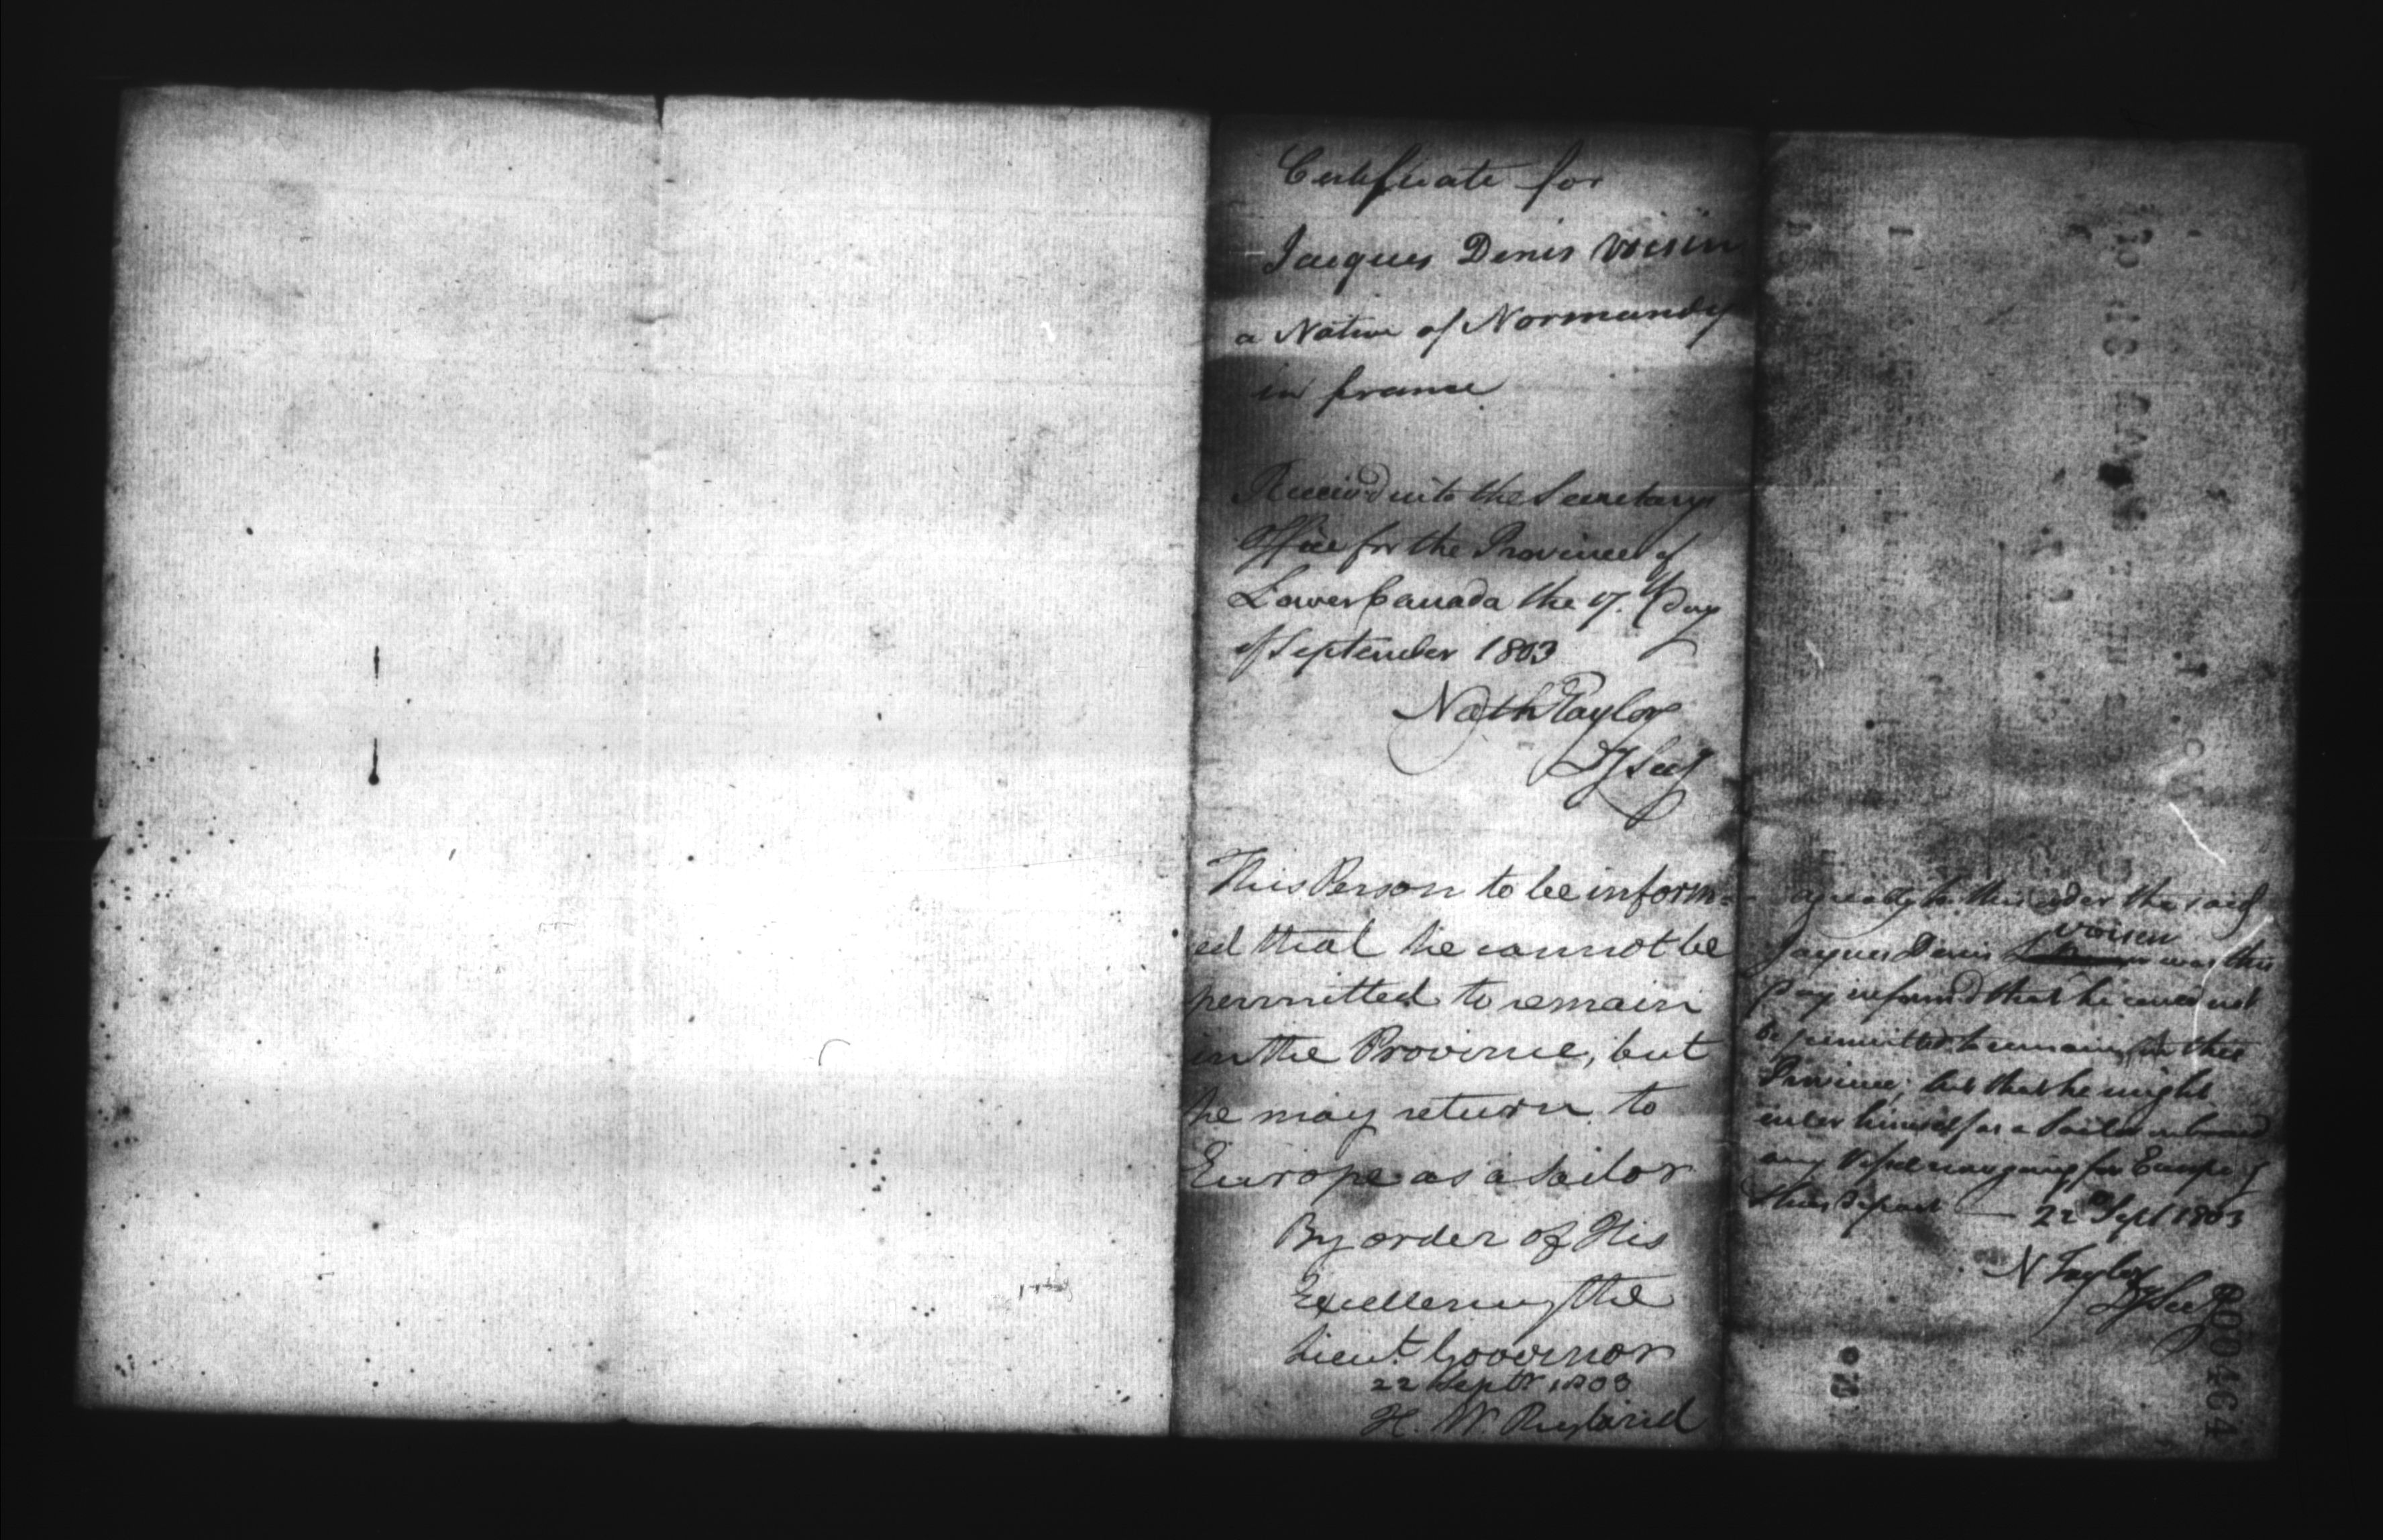 Certificate for
Jacques Denis voisin
a Native of Normandy
in france
Receivd into the Secretarys
Office for the Province of
Lower Canada the 17.th day
of September 1803
Nath Taylor
Dy Secy
This Person to be inform=
ed that he cannot be
permitted to remain
in the Province, but
he may return to
Europe as a Sailor
By order of His
Excellency the
Lieut. Governor
22 Septr 1803
H. W. Ryland
agreeably to this order the said
voisin
Jacques Denis was this
Day informd that he could not
be permitted to remain in this
Province, but that he might
enter himself as a Sailor onboard
any Vessel now going for Europe
22d Sept 1803
N Taylor
Dy Secy
000464